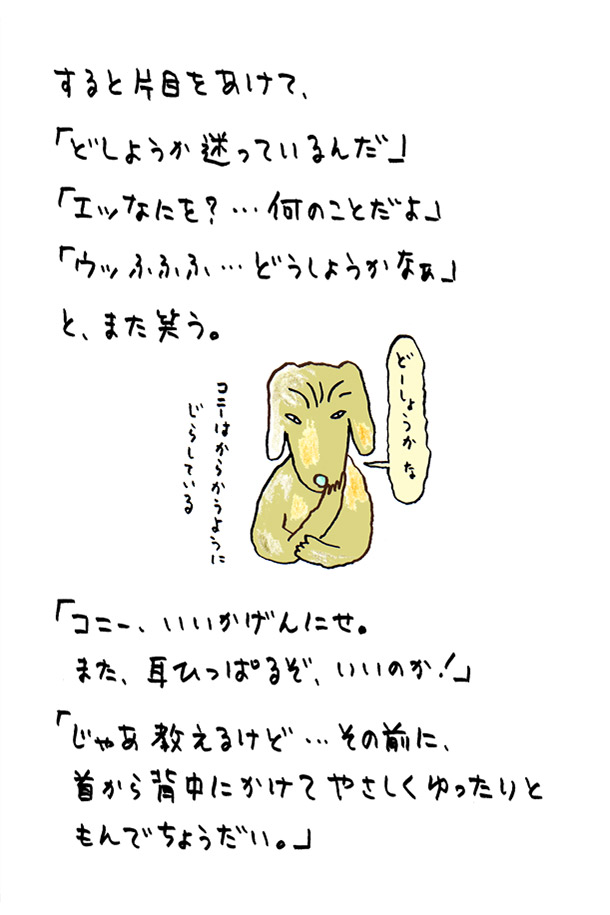 すると片目をあけて、
「どしようか迷っているんだ」
「エッなにを？…何のことだよ」
「ウッふふふ…どうしようかなぁ」
と、また笑う。
どーしようかな
コニーはからかうように
じらしている
「コニー、いいかげんにせ。
また、耳ひっぱるぞ、いいのか！」
「じゃあ教えるけど…その前に、
首から背中にかけてやさしくゆったりと
もんでちょうだい。」